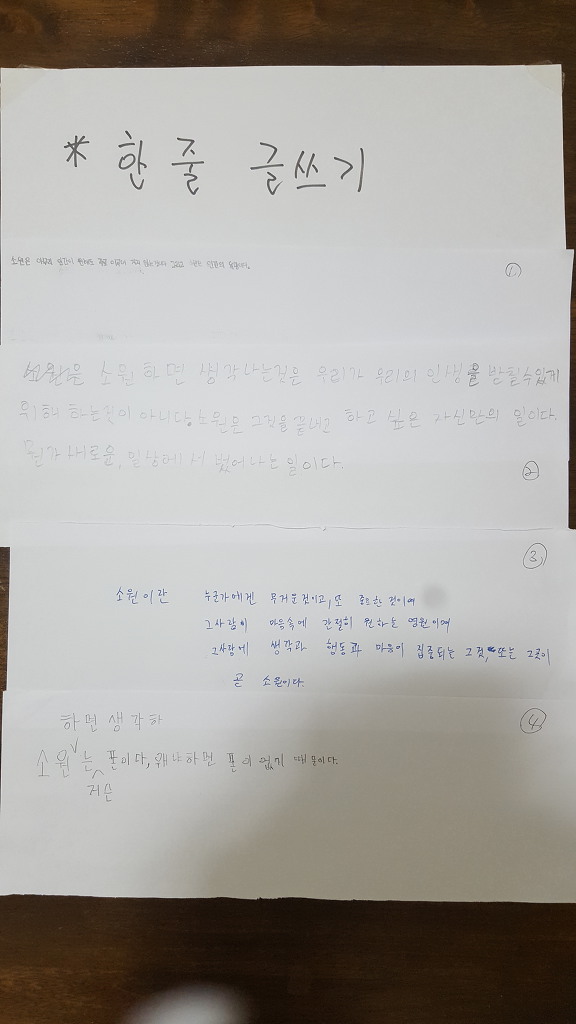 * 한 줄 글쓰기
소원은 인간이
①
소원 하면 생각나는것은 우리가 우리의 인생을 받칠수있게
위해 하는것이 아니다. 소원은 그것을 끝내고 하고 싶은 자신만의 일이다.
뭔가 새로운, 일상에서 벗어나는 일이다.
②
③
소원이란 누군가에겐 무거운것이고, 또 중요한 것이며
그사람이 마음속에 간절히 원하는 영원이며
그사람에 생각과 행동과 마음이 집중되는 그것, 또는 그곳이
곧 소원이다.
④
하면 생각하
소원 는 폰이다, 왜냐하면 폰이 없기 때문이다.